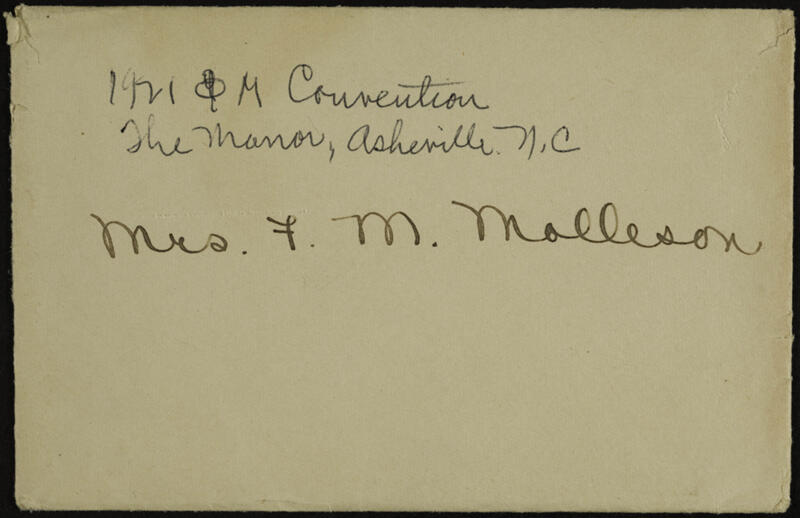 1921 ΦM Convention
The Manor, Asheville. N.C
Mrs. F. M. Molleson